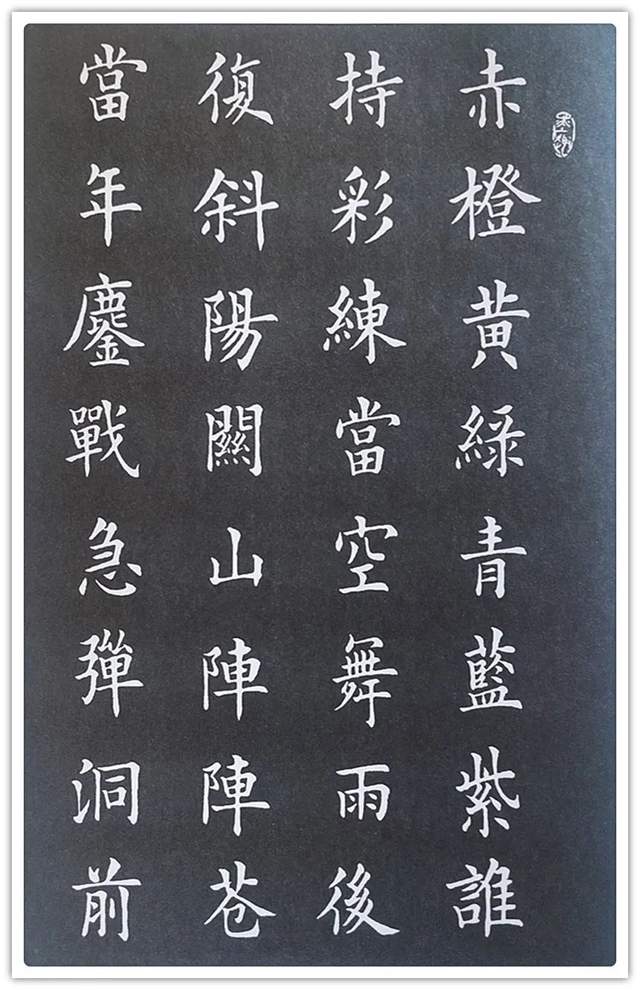 赤橙黄綠青藍紫誰
持彩練當空舞雨後
復斜陽關山陣陣苍
當年鏖戰急彈洞前